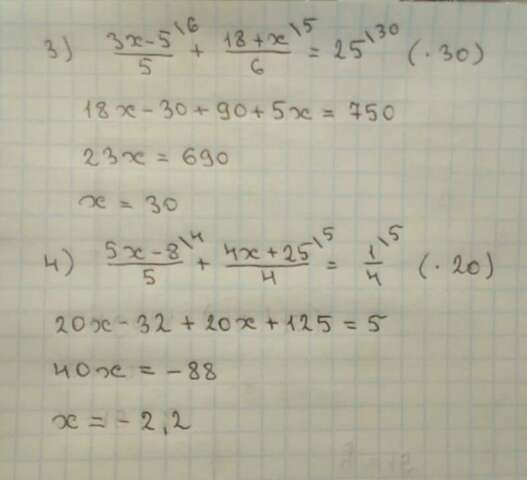 3) (3x-5)/5 \6 + (18+x)/6 \5 = 25 \30 (·30)
18x-30+90+5x=750
23x=690
x=30
4) (5x-8)/5 \4 + (4x+25)/4 \5 = 1/4 \5 (·20)
20x-32+20x+125=5
40x=-88
x=-2,2